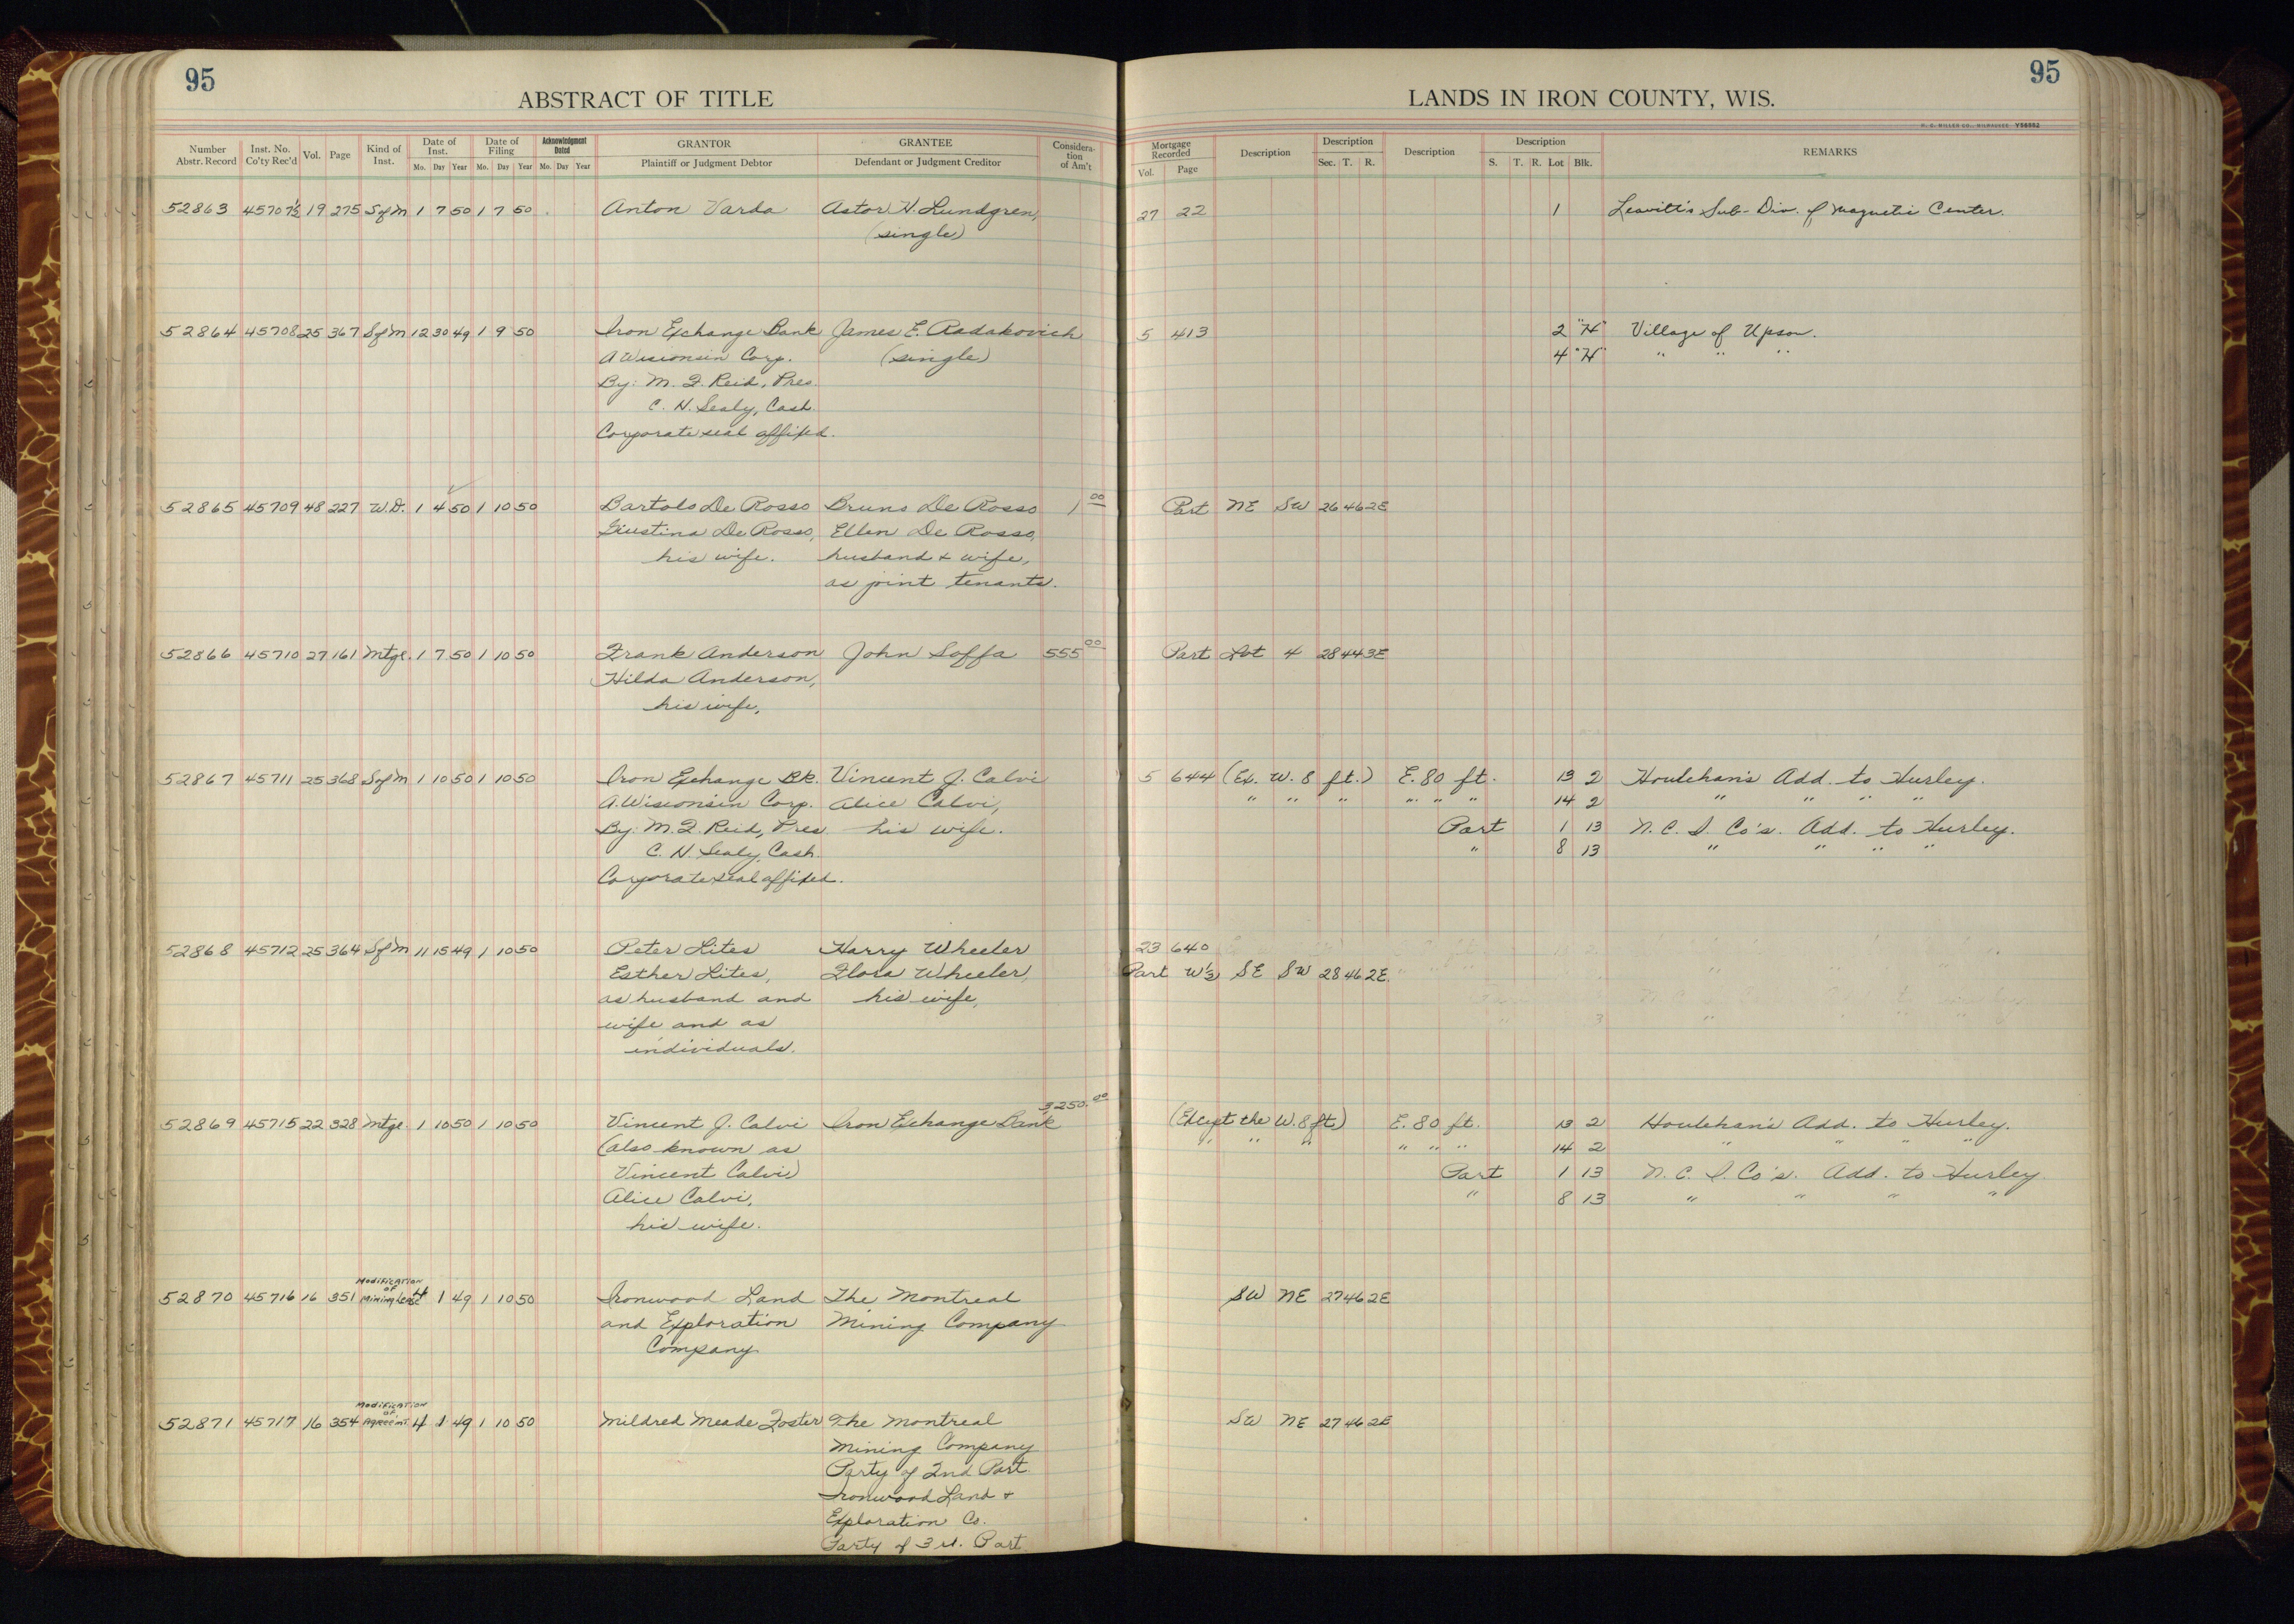 95
95
ABSTRACT OF TITLE
LANDS IN IRON COUNTY, WIS.
H. C. MILLER CO., MILWAUKEE Y58552
Number Abstr. Record Inst. No. Co'ty Rec'd Vol. Page Kind of Inst. Date of Inst. Mo. Day Year Date of Filing Mo. Day Year Acknowledgment Dated Mo. Day Year GRANTOR Plaintiff or Judgment Debtor GRANTEE Defendant or Judgment Creditor Considera-tion of Am't
Mortgage Recorded Vol. Page Description Description Sec. T. R. Description Description S. T. R. Lot Blk. REMARKS
52863 45707½ 19 275 S of M 1 7 50 1 7 50 Anton Varda Astor H. Lundgren, 27 22 1 Leavitt's Sub-Div. of Magnetic Center.
(single)
52864 45708 25 367 S of M 12 30 49 1 9 50 Iron Exchange Bank James E. Radakovich 5 413 2 "H" Village of Upson.
A Wisconsin Corp. (single) 4 "H" " " "
By: M. F. Reid, Pres.
C. N. Sealy, Cash.
Corporate seal affixed.
52865 45709 48 227 W.D. 1 4 50 1 10 50 Bartolo De Rosso Bruno De Rosso 1 00 Part NE SW 26 46 2E
Giustina De Rosso, Ellen De Rosso,
his wife. husband & wife,
as joint tenants.
52866 45710 27 161 Mtge. 1 7 50 1 10 50 Frank Anderson John Soffa 555 00 Part Lot 4 28 44 3E
Hilda Anderson,
his wife,
52867 45711 25 368 S of M 1 10 50 1 10 50 Iron Exchange Bk. Vincent J. Calvi 5 644 (Ex. W. 8 ft.) E. 80 ft. 13 2 Houlehan's Add. to Hurley.
A. Wisconsin Corp. Alice Calvi, " " " " " " 14 2 " " " "
By: M. F. Reid, Pres his wife. Part 1 13 N. C. I. Co's. Add. to Hurley.
C. N. Sealy, Cash. " 8 13 " " " "
Corporate seal affixed.
52868 45712 25 364 S of M 11 15 49 1 10 50 Peter Lites Harry Wheeler 23 640
Esther Lites, Flora Wheeler, Part W½ SE SW 28 46 2E.
as husband and his wife,
wife and as
individuals.
3250.00
52869 45715 22 328 Mtge. 1 10 50 1 10 50 Vincent J. Calvi Iron Exchange Bank (Except the W. 8 ft) E. 80 ft. 13 2 Houlehan's Add. to Hurley.
(also known as " " " " " " " 14 2 " " " "
Vincent Calvi) Part 1 13 N. C. I. Co's. Add. to Hurley
Alice Calvi, " 8 13 " " " "
his wife.
52870 45716 16 351 Modification of Mining Lease 4 1 49 1 10 50 Ironwood Land The Montreal SW NE 27 46 2E
and Exploration Mining Company
Company
52871 45717 16 354 Modification of Agreemt. 4 1 49 1 10 50 Mildred Meade Foster The Montreal SW NE 27 46 2E
Mining Company
Party of 2nd Part.
Ironwood Land &
Exploration Co.
Party of 3rd. Part.